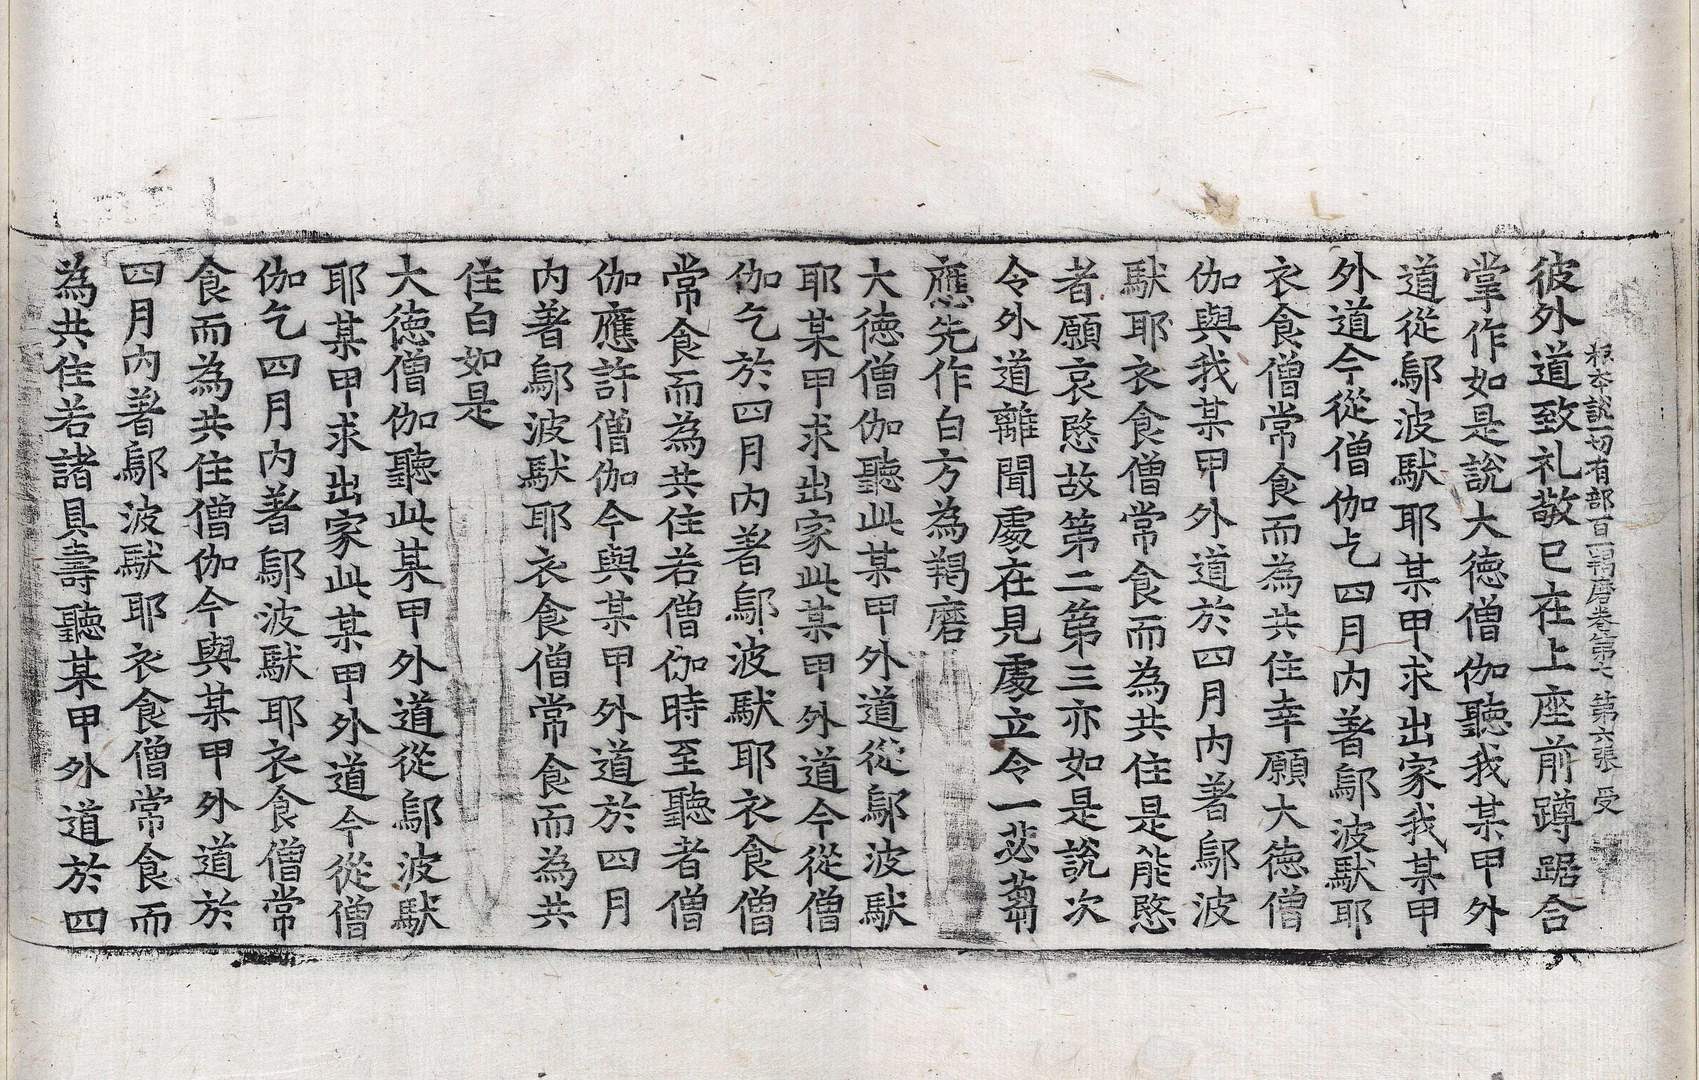 根本說一切有部百一羯磨卷第 第六張 受
彼外道致礼敬已在上座前蹲踞合
掌作如是說大德僧伽聽我某甲外
道從鄔波馱耶某甲求出家我某甲
外道今從僧伽乞四月內著鄔波馱耶
衣食僧常食而為共住幸願大德僧
伽與我某甲外道於四月內著鄔波
馱耶衣食僧常食而為共住是能愍
者願哀愍故第二第三亦如是說次
令外道離聞處在見處立令一苾芻
應先作白方為羯磨
大德僧伽聽此某甲外道從鄔波馱
耶某甲求出家此某甲外道今從僧
伽乞於四月內著鄔波馱耶衣食僧
常食而為共住若僧伽時至聽者僧
伽應許僧伽今與某甲外道於四月
內著鄔波馱耶衣食僧常食而為共
住白如是
大德僧伽聽此某甲外道從鄔波馱
耶某甲求出家此某甲外道今從僧
伽乞四月內著鄔波馱耶衣食僧常
食而為共住僧伽今與某甲外道於
四月內著鄔波馱耶衣食僧常食而
為共住若諸具壽聽某甲外道於四